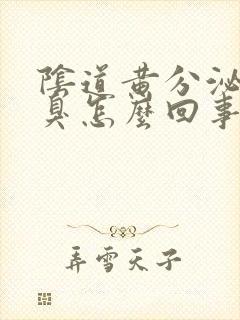 陰道黃分泌
臭怎麼回事
弄雪天子